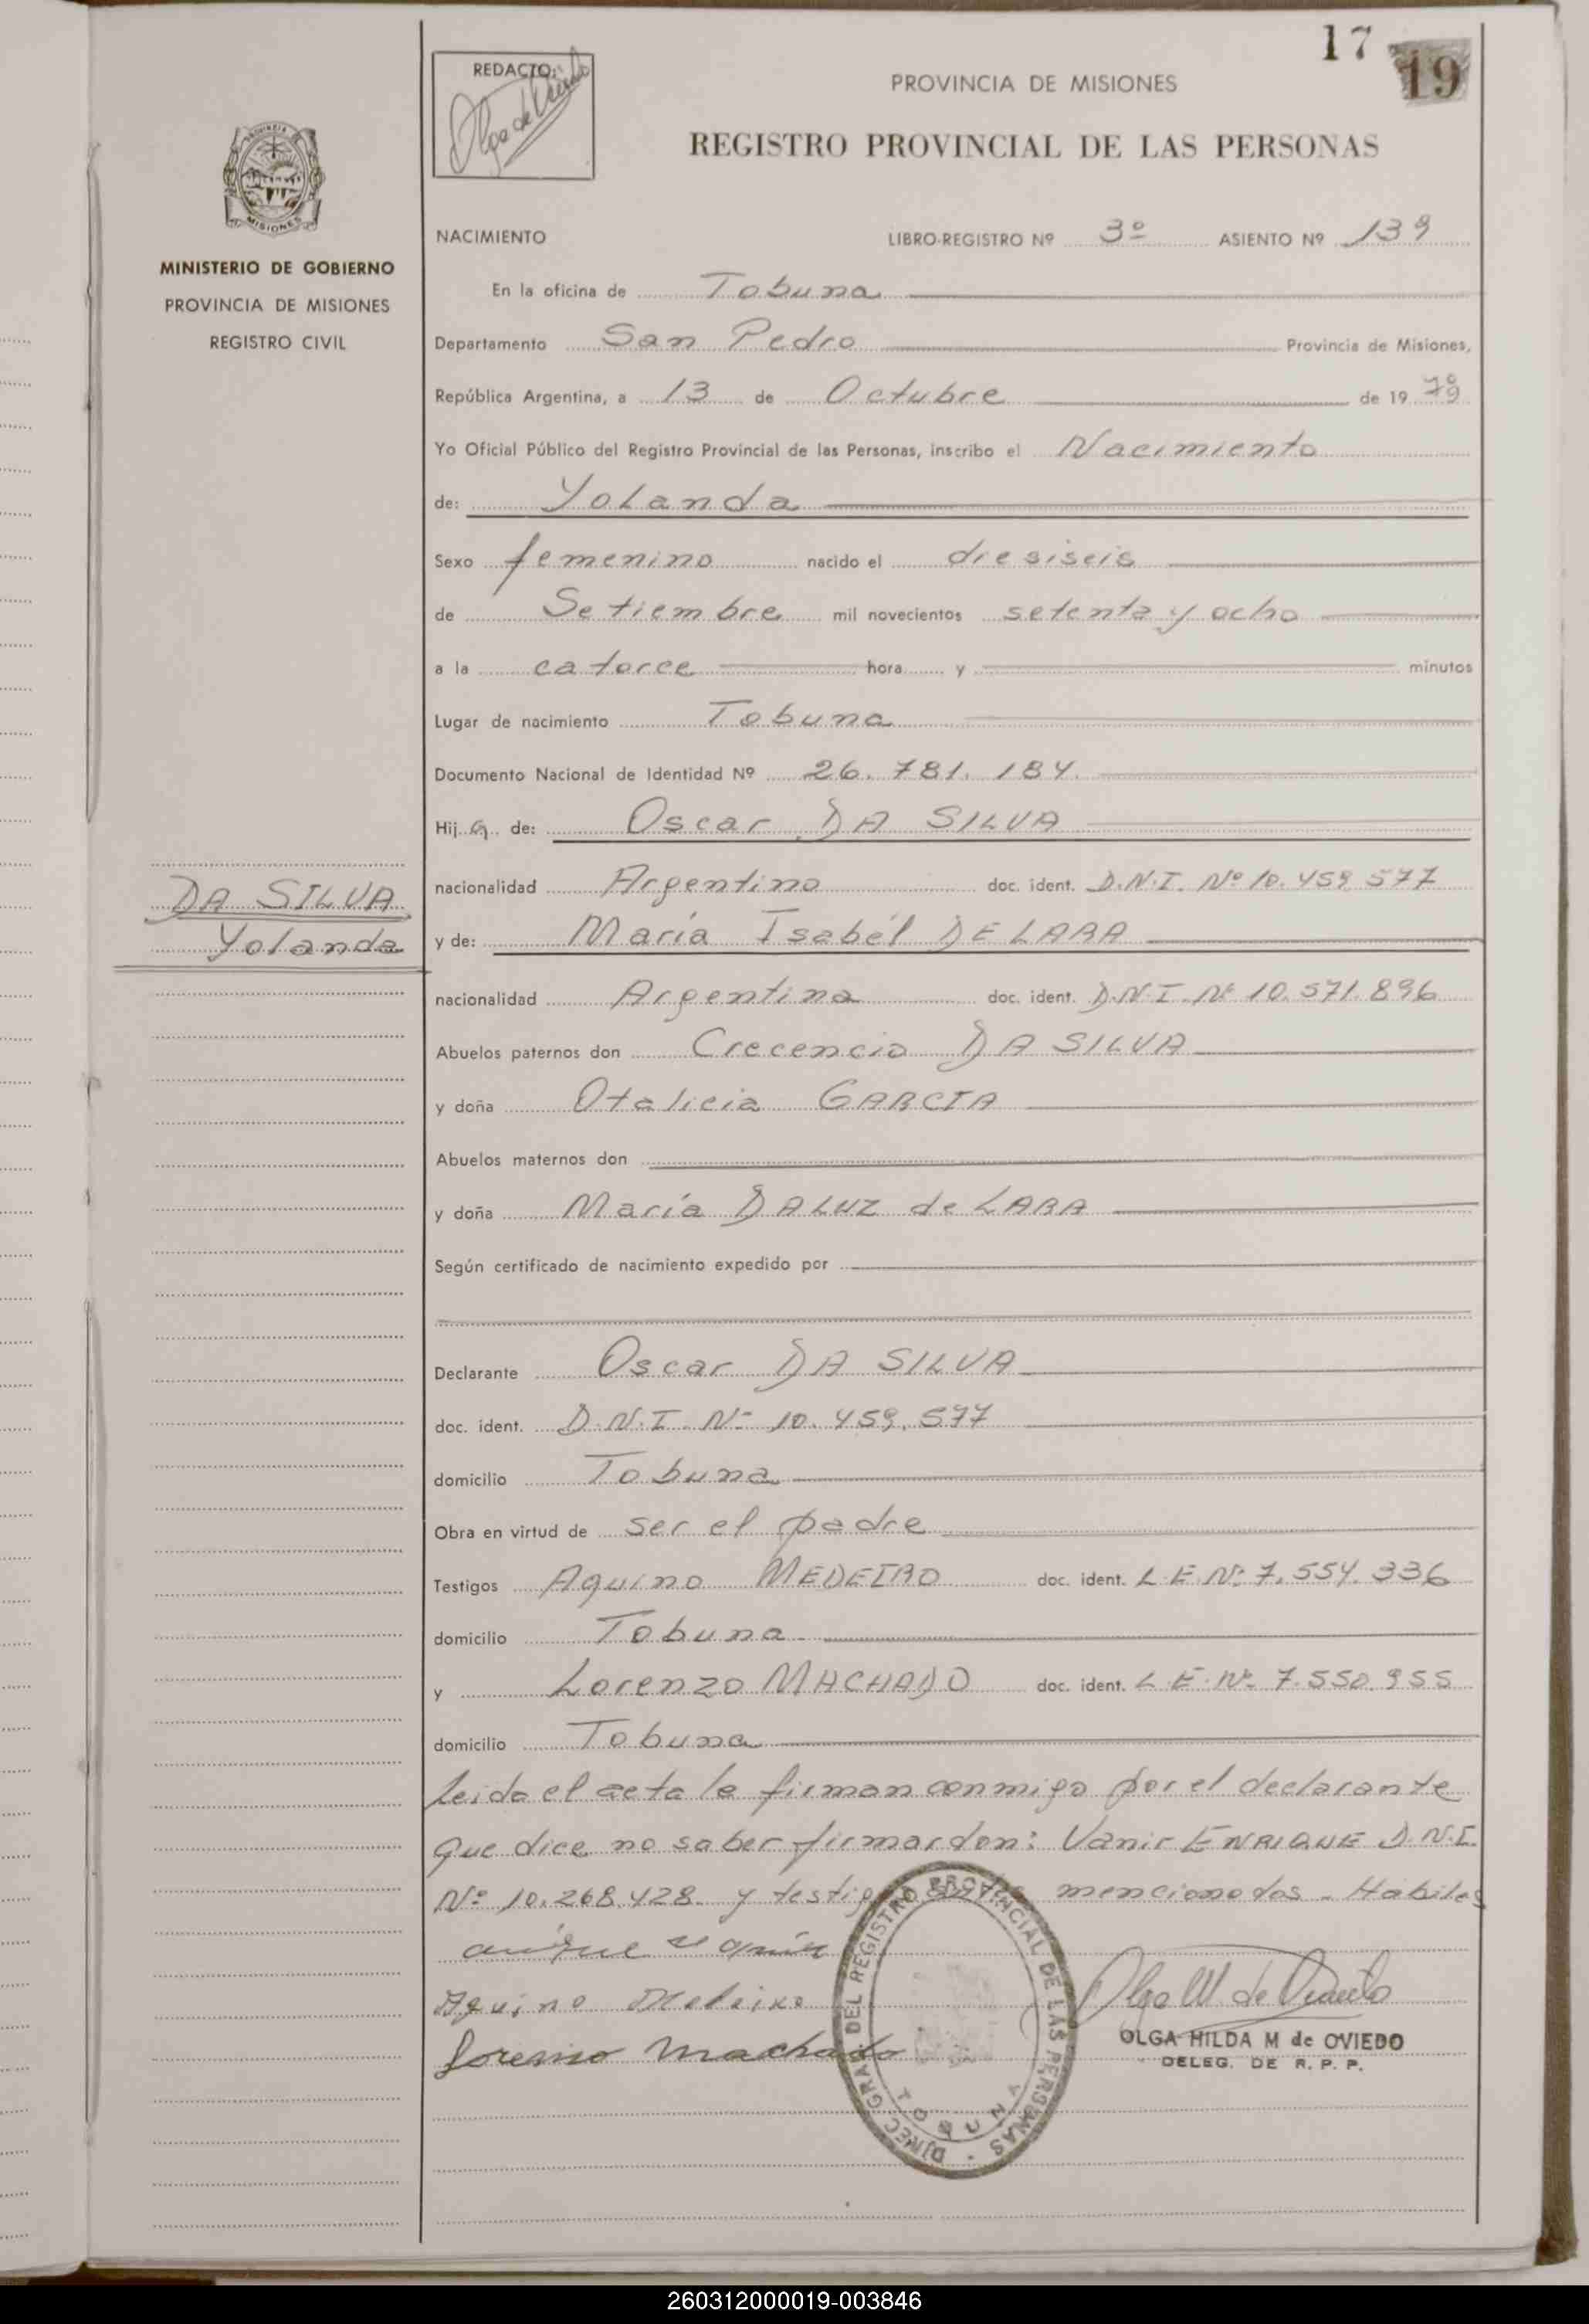 17
19
REDACTO:
Olga de Oviedo
PROVINCIA DE MISIONES
REGISTRO PROVINCIAL DE LAS PERSONAS
MISIONES
MINISTERIO DE GOBIERNO
PROVINCIA DE MISIONES
REGISTRO CIVIL
NACIMIENTO LIBRO-REGISTRO Nº 3º ASIENTO Nº 139
En la oficina de Tobuna
Departamento San Pedro Provincia de Misiones,
República Argentina, a 13 de Octubre de 19
Yo Oficial Público del Registro Provincial de las Personas, inscribo el Nacimiento
de: Yolanda
Sexo femenino nacido el diesiseis
de Setiembre mil novecientos setenta y ocho
a la catorce hora y minutos
Lugar de nacimiento Tobuna
Documento Nacional de Identidad Nº 26.781.184.
Hija de: Oscar DA SILVA
nacionalidad Argentino doc. ident. D.N.I. Nº 10.459.577
DA SILVA
Yolanda
y de: María Isabél DE LARA
nacionalidad Argentina doc. ident. D.N.I. Nº 10.571.896
Abuelos paternos don Crecencio DA SILVA
y doña Otalicia GARCIA
Abuelos maternos don
y doña María DA LUZ de LARA
Según certificado de nacimiento expedido por
Declarante Oscar DA SILVA
doc. ident. D.N.I. Nº 10.459.577
domicilio Tobuna
Obra en virtud de ser el padre
Testigos Aquino MEDEIRO doc. ident. L.E. Nº 7.554.336
domicilio Tobuna
y Lorenzo MACHADO doc. ident. L.E. Nº 7.550.955
domicilio Tobuna
Leida el acta la firman conmigo por el declarante
que dice no saber firmar don: Vanir ENRIQUE D.N.I.
Nº 10.268.428. y testigos mencionados. Habiles
Aquino Medeiro
Lorenso Machado
Olga M de Oviedo
OLGA HILDA M de OVIEDO
DELEG. DE R. P. P.
DIREC GRAL DEL REGISTRO PROVINCIAL DE LAS PERSONAS
TOBUNA
260312000019-003846